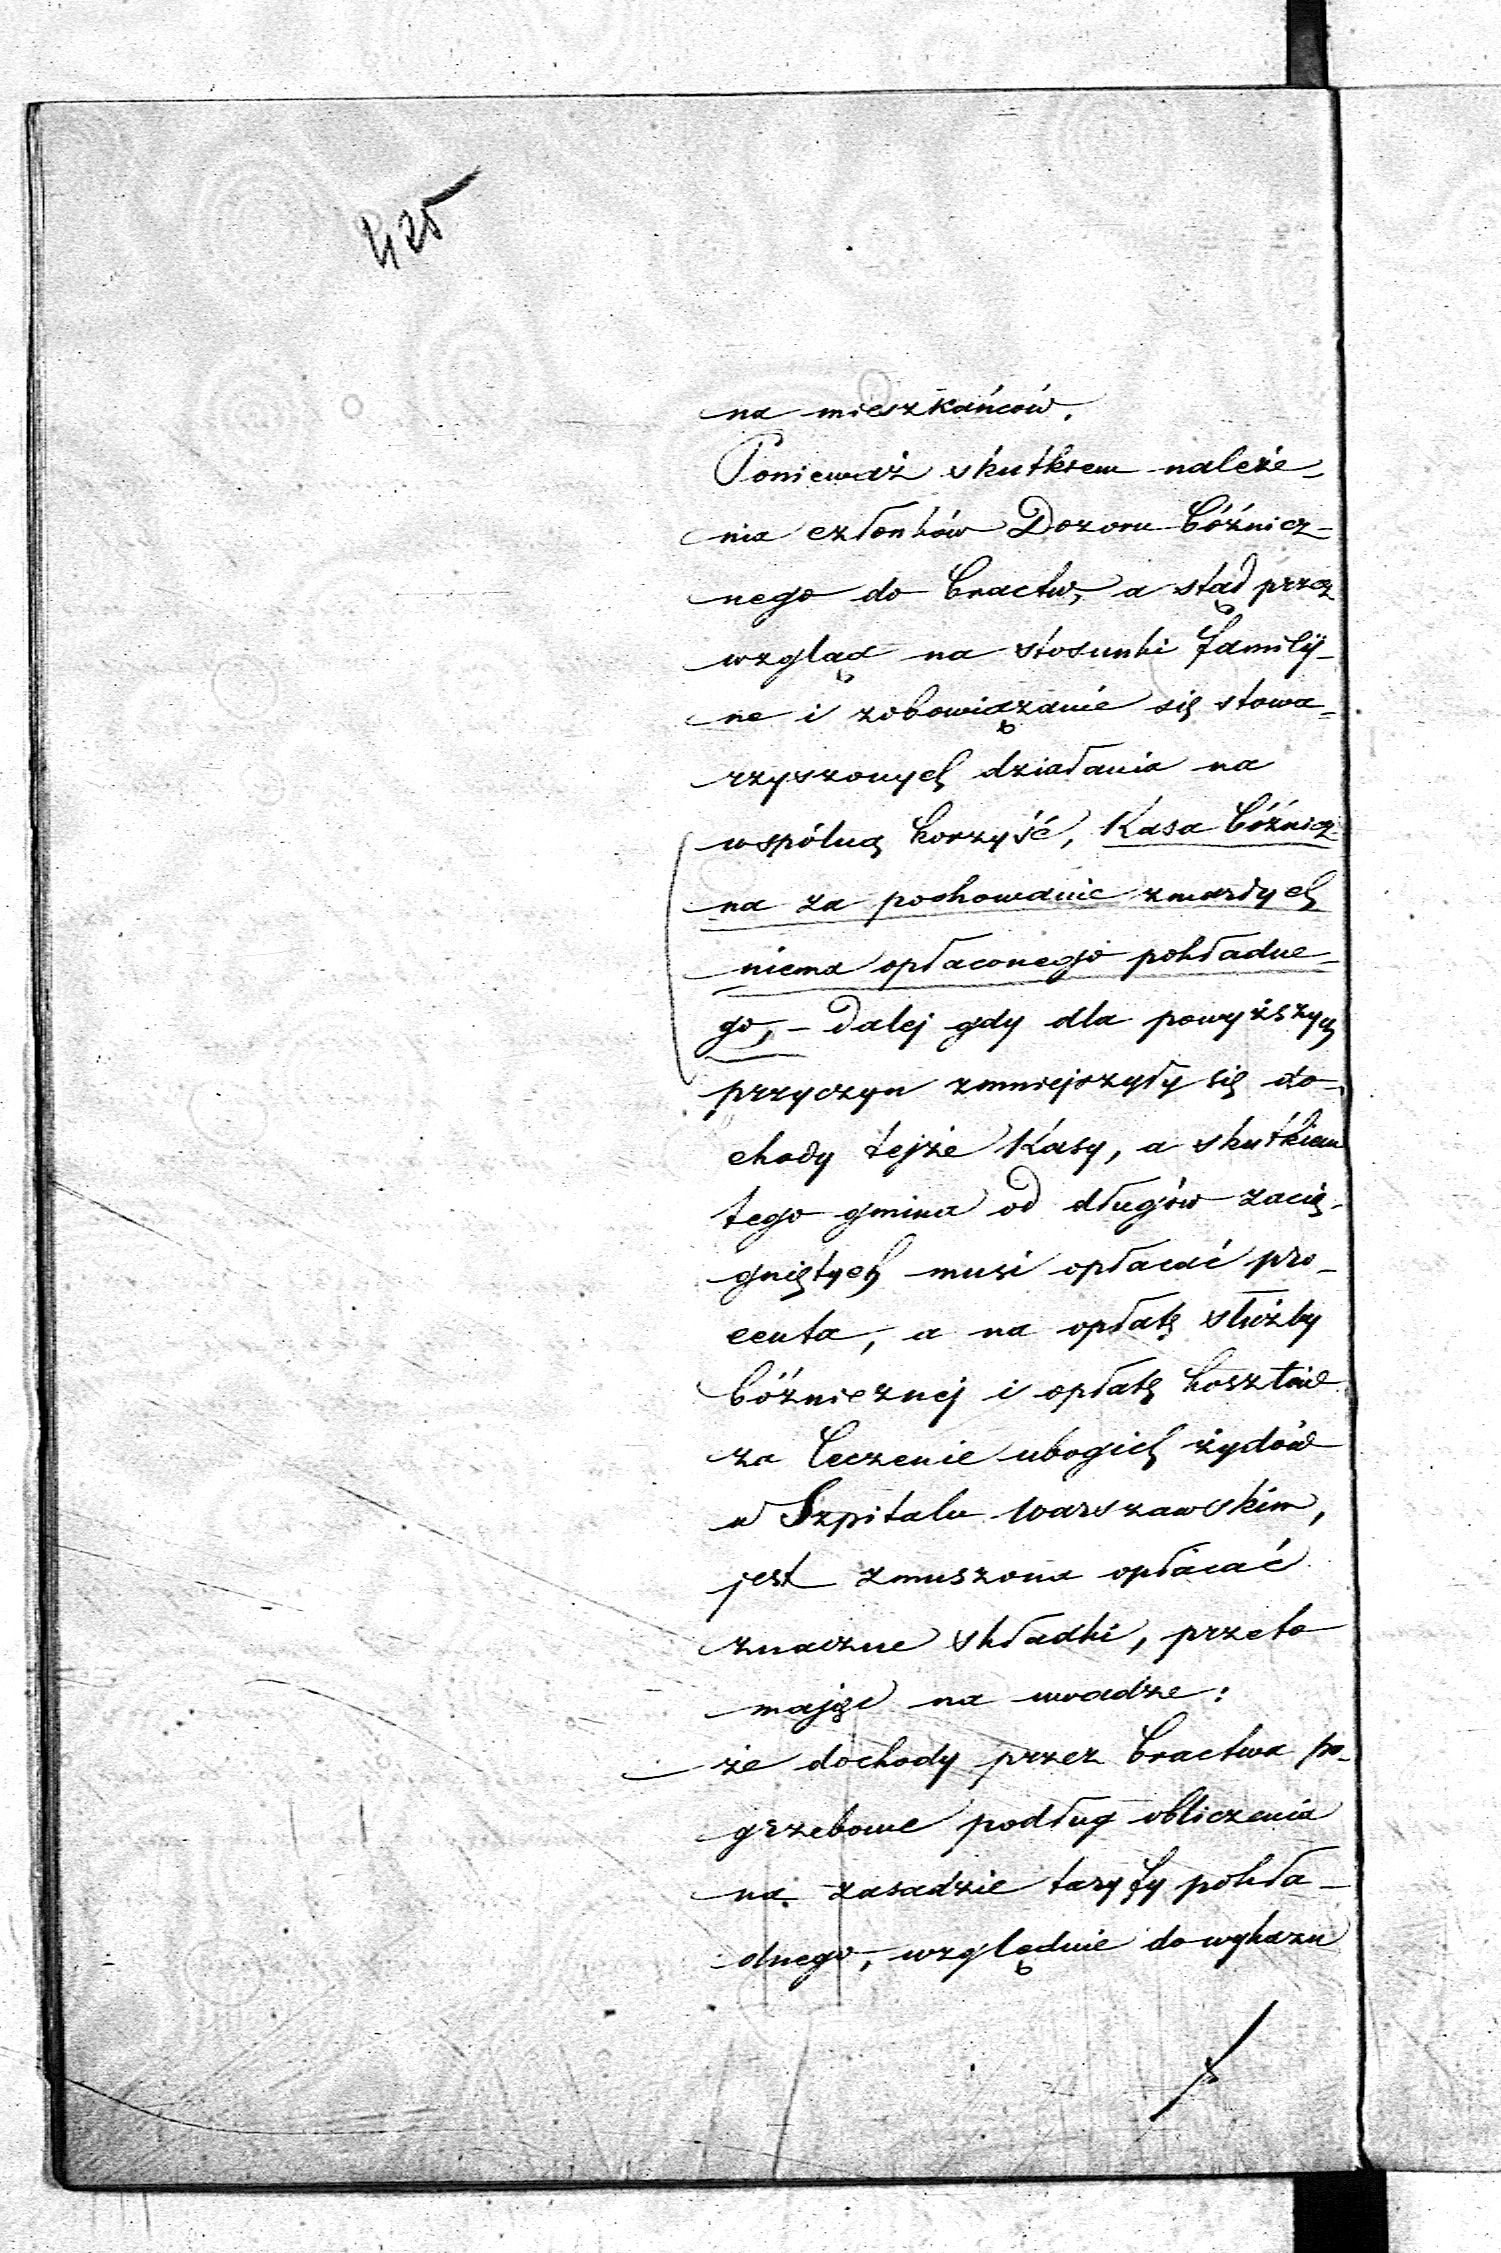 425
na mieszkańców.
Ponieważ skutkiem należe-
nia członków Dozoru bóźnicz-
nego do bractw, a stąd przez
wzgląd na stosunki familij-
ne i zobowiązanie się stowa-
rzyszonych działania na
wspólną korzyść, Kasa bóźnicz-
na za pochowanie zmarłych
niema opłaconego pokładne-
go, - dalej gdy dla powyższych
przyczyn zmniejszyły się do-
chody tejże Kasy, a skutkiem
tego gmina od długów zacią-
gniętych musi opłacać pro-
centa, a na opłatę służby
bóźnicznej i opłatę kosztów
za leczenie ubogich żydów
w Szpitalu Warszawskim,
jest zmuszona opłacać
znaczne składki, przeto
mając na uwadze:
że dochody przez bractwa po-
grzebowe podług obliczenia
na zasadzie taryfy pokła-
dnego, względnie do wykazu